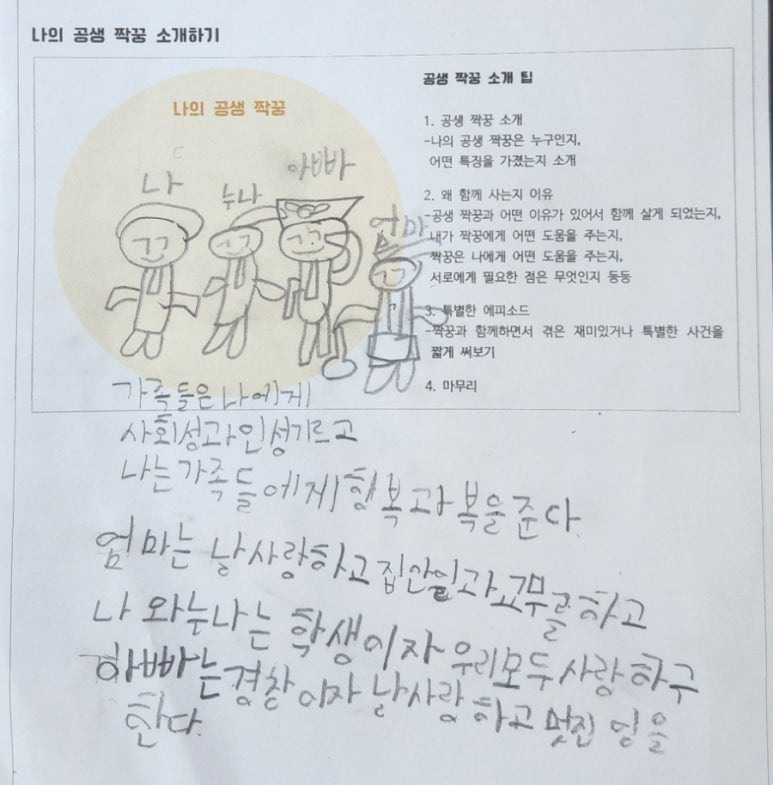 나의 공생 짝꿍 소개하기
나의 공생 짝꿍
나
누나
아빠
엄마
공생 짝꿍 소개 팁
1. 공생 짝꿍 소개
-나의 공생 짝꿍은 누구인지,
어떤 특징을 가졌는지 소개
2. 왜 함께 사는지 이유
-공생 짝꿍과 어떤 이유가 있어서 함께 살게 되었는지,
내가 짝꿍에게 어떤 도움을 주는지,
짝꿍은 나에게 어떤 도움을 주는지,
서로에게 필요한 점은 무엇인지 등등
3. 특별한 에피소드
-짝꿍과 함께하면서 겪은 재미있거나 특별한 사건을
짧게 써보기
4. 마무리
가족들은 나에게
사회성과 인성기르고
나는 가족들에게 행복과 복을 준다.
엄마는 날 사랑하고 집안일과 교무를 하고
나와 누나는 학생이자 우리모두 사랑하구
아빠는 경찰이자 날 사랑하고 멋진 일을
한다.